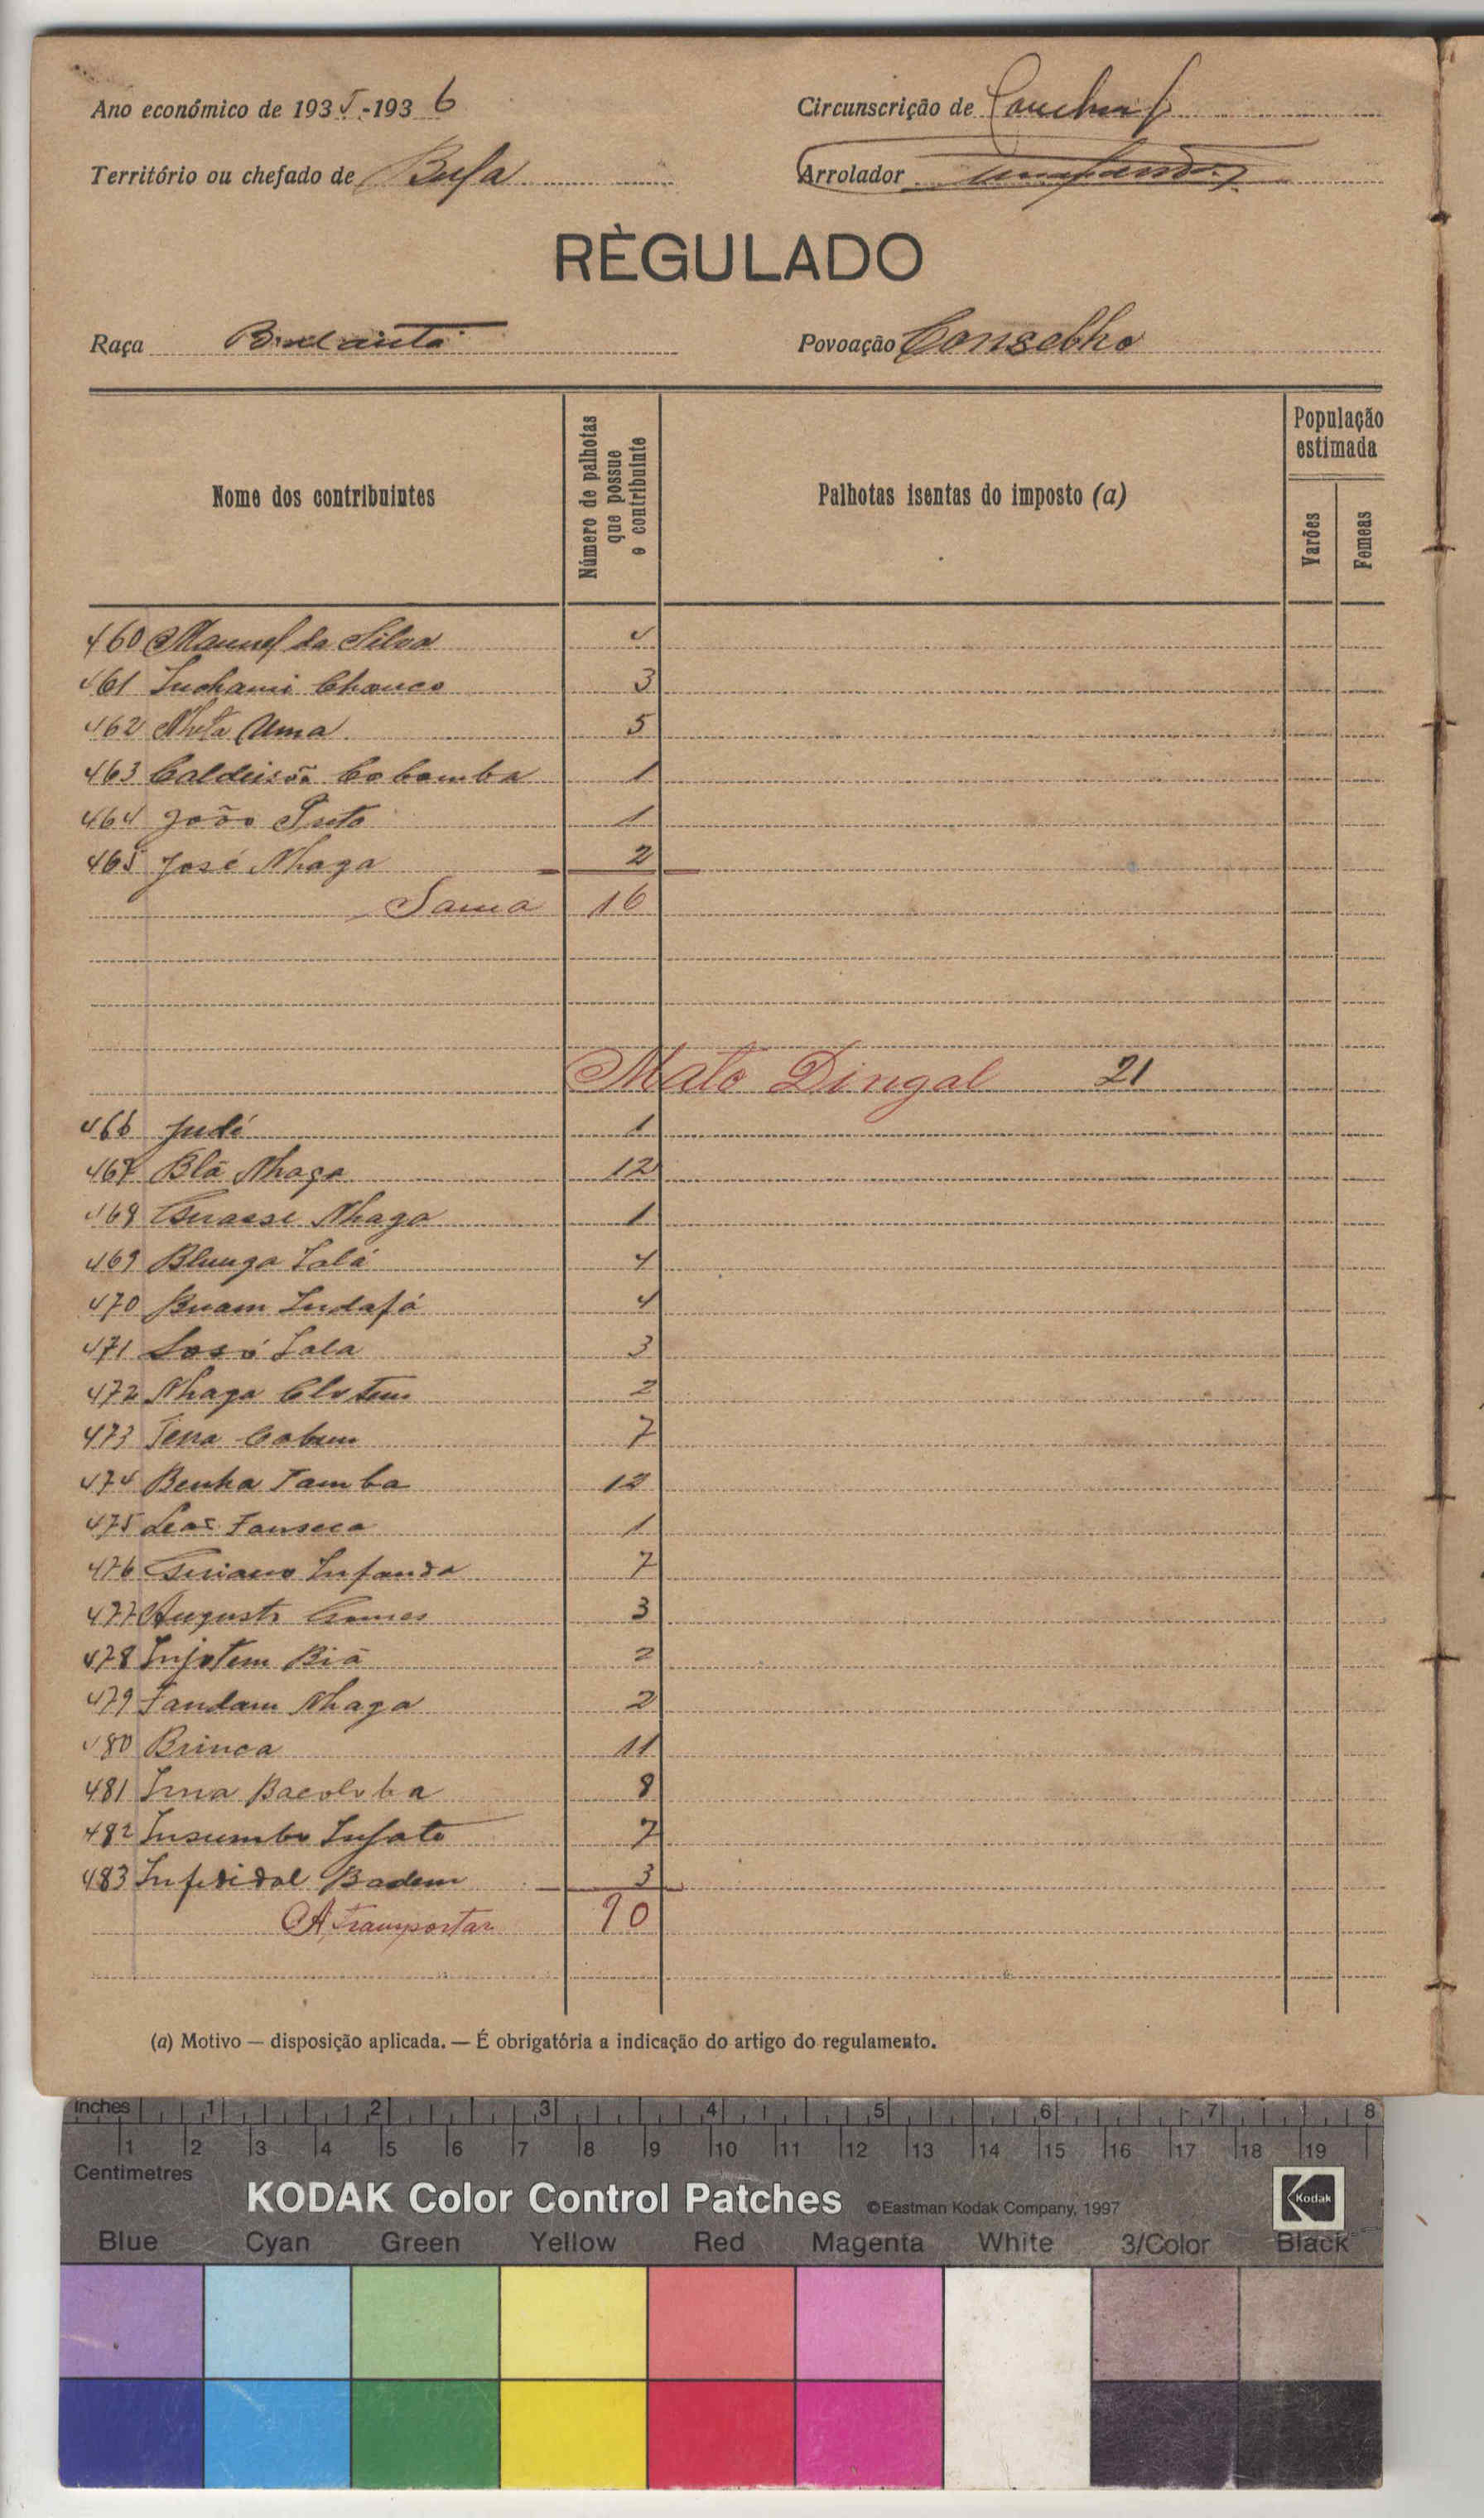 Ano económico de 1935-1936
Circunscrição de
Território ou chefado de Bufa
Arrolador
RÈGULADO
Raça
Povoação Conselho
Nome dos contribuintes
Número de palhotas que possue o contribuinte
Palhotas isentas do imposto (a)
População estimada
Varões
Femeas
460 Manuel da Silva
461 3
462 Uma 5
463 1
464 João Preto 1
465 José Nhaga 2
Soma 16
Mato Dingal 21
466 Judé 1
467 Blá Nhaga 12
468 Nhaga 1
469 Blunga Lalá 4
470 Buam Indafá 4
471 Lala 3
472 Nhaga 2
473 7
474 Benha Tamba 12
475 Fonseca 1
476 Infanda 7
477 Augusto Gomes 3
478 Injotem Biã 2
479 Nhaga 2
480 Brinca 11
481 8
482 Insumbo 7
483 Badem 3
A transportar 90
(a) Motivo — disposição aplicada. — É obrigatória a indicação do artigo do regulamento.
Inches 1 2 3 4 5 6 7 8
1 2 3 4 5 6 7 8 9 10 11 12 13 14 15 16 17 18 19
Centimetres
KODAK Color Control Patches ©Eastman Kodak Company, 1997 Kodak
Blue Cyan Green Yellow Red Magenta White 3/Color Black